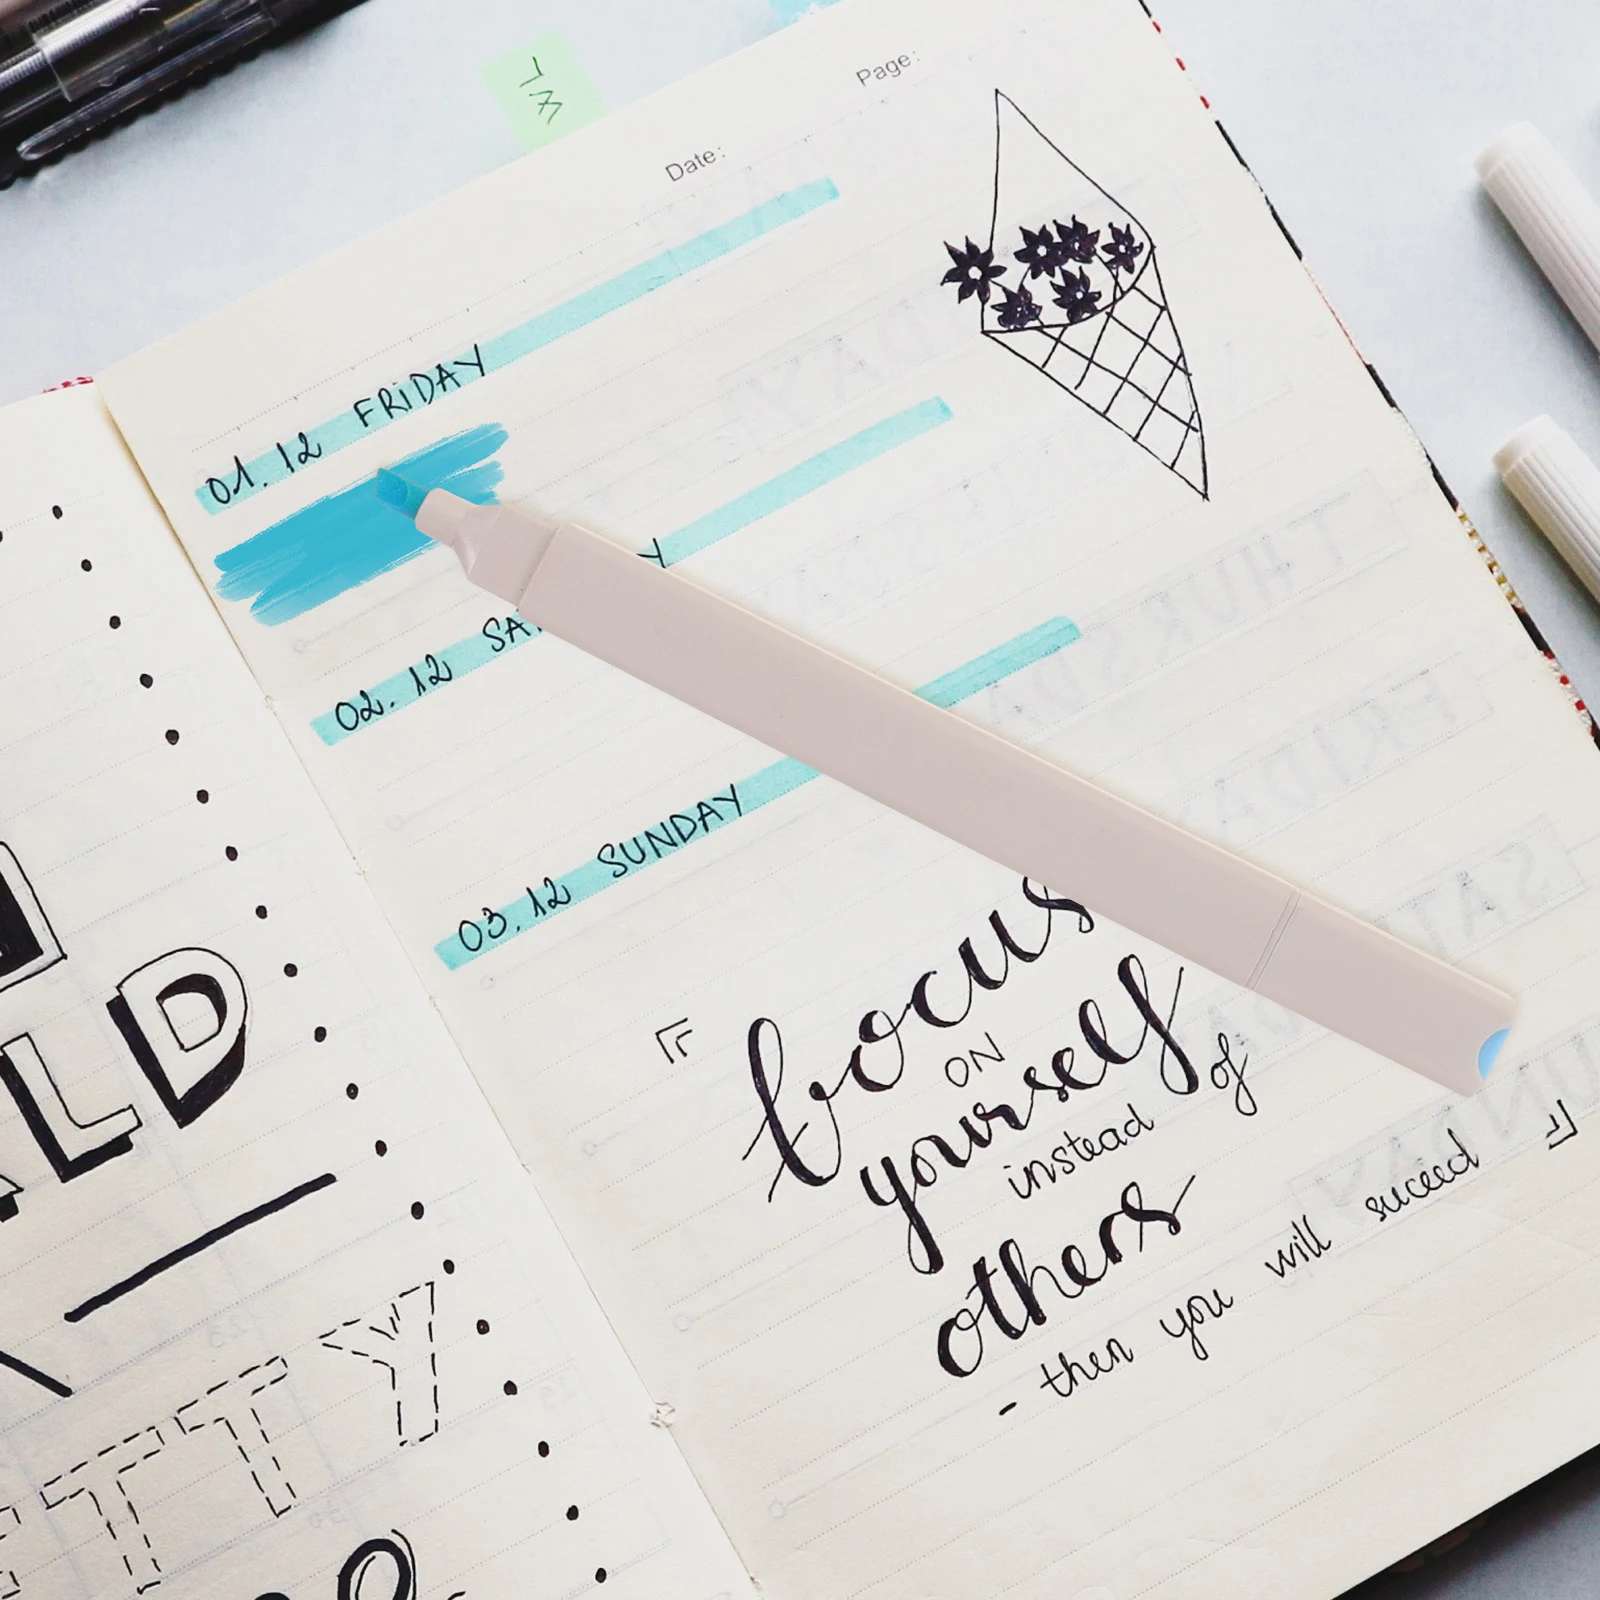 Page:
Date:
01.12 FRiDAY
02.12 SA
Y
03.12 SUNDAY
focus
ON
yourself
instead of
others
- then you will suceed
LD
TTY